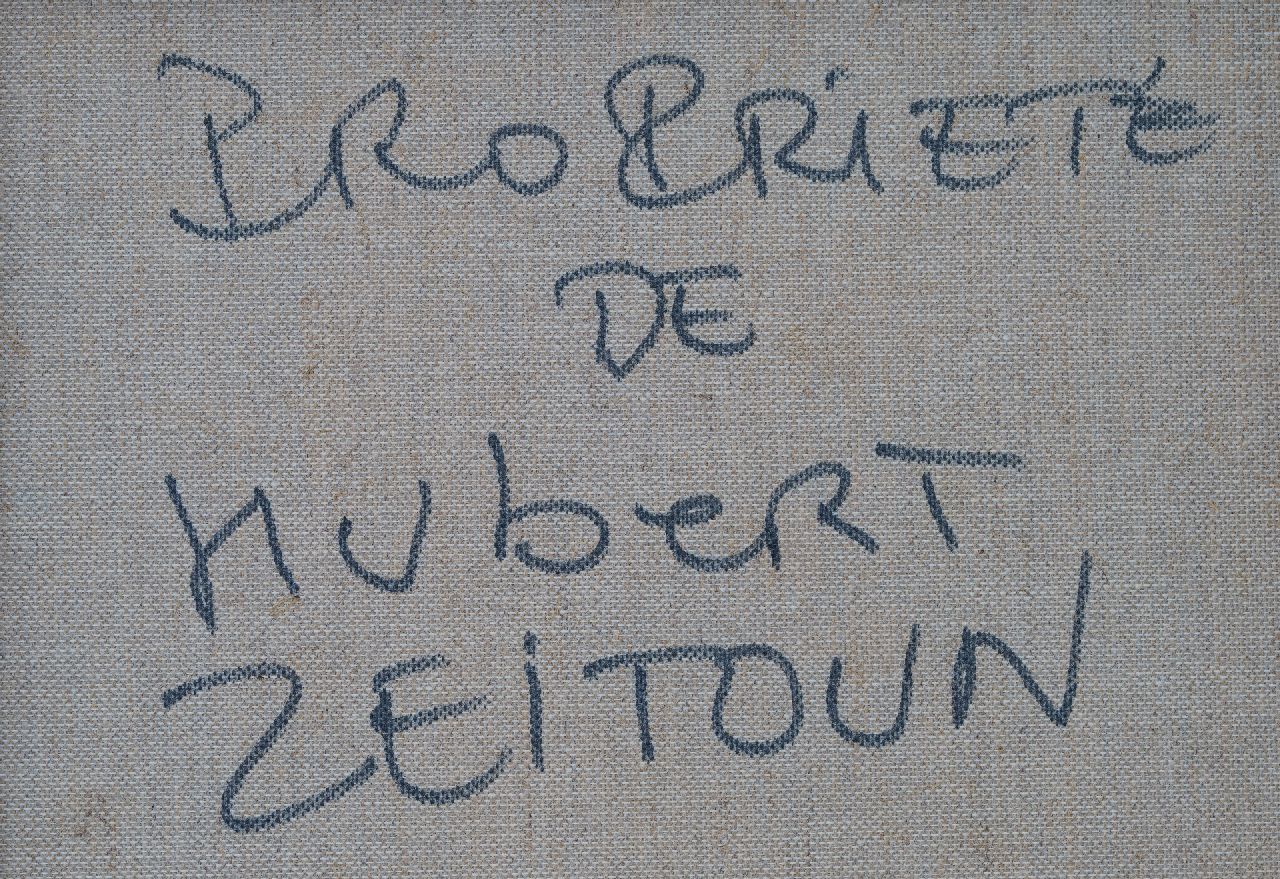 PROPRIETÉ
DE
HUbeRT
ZEiTOUN